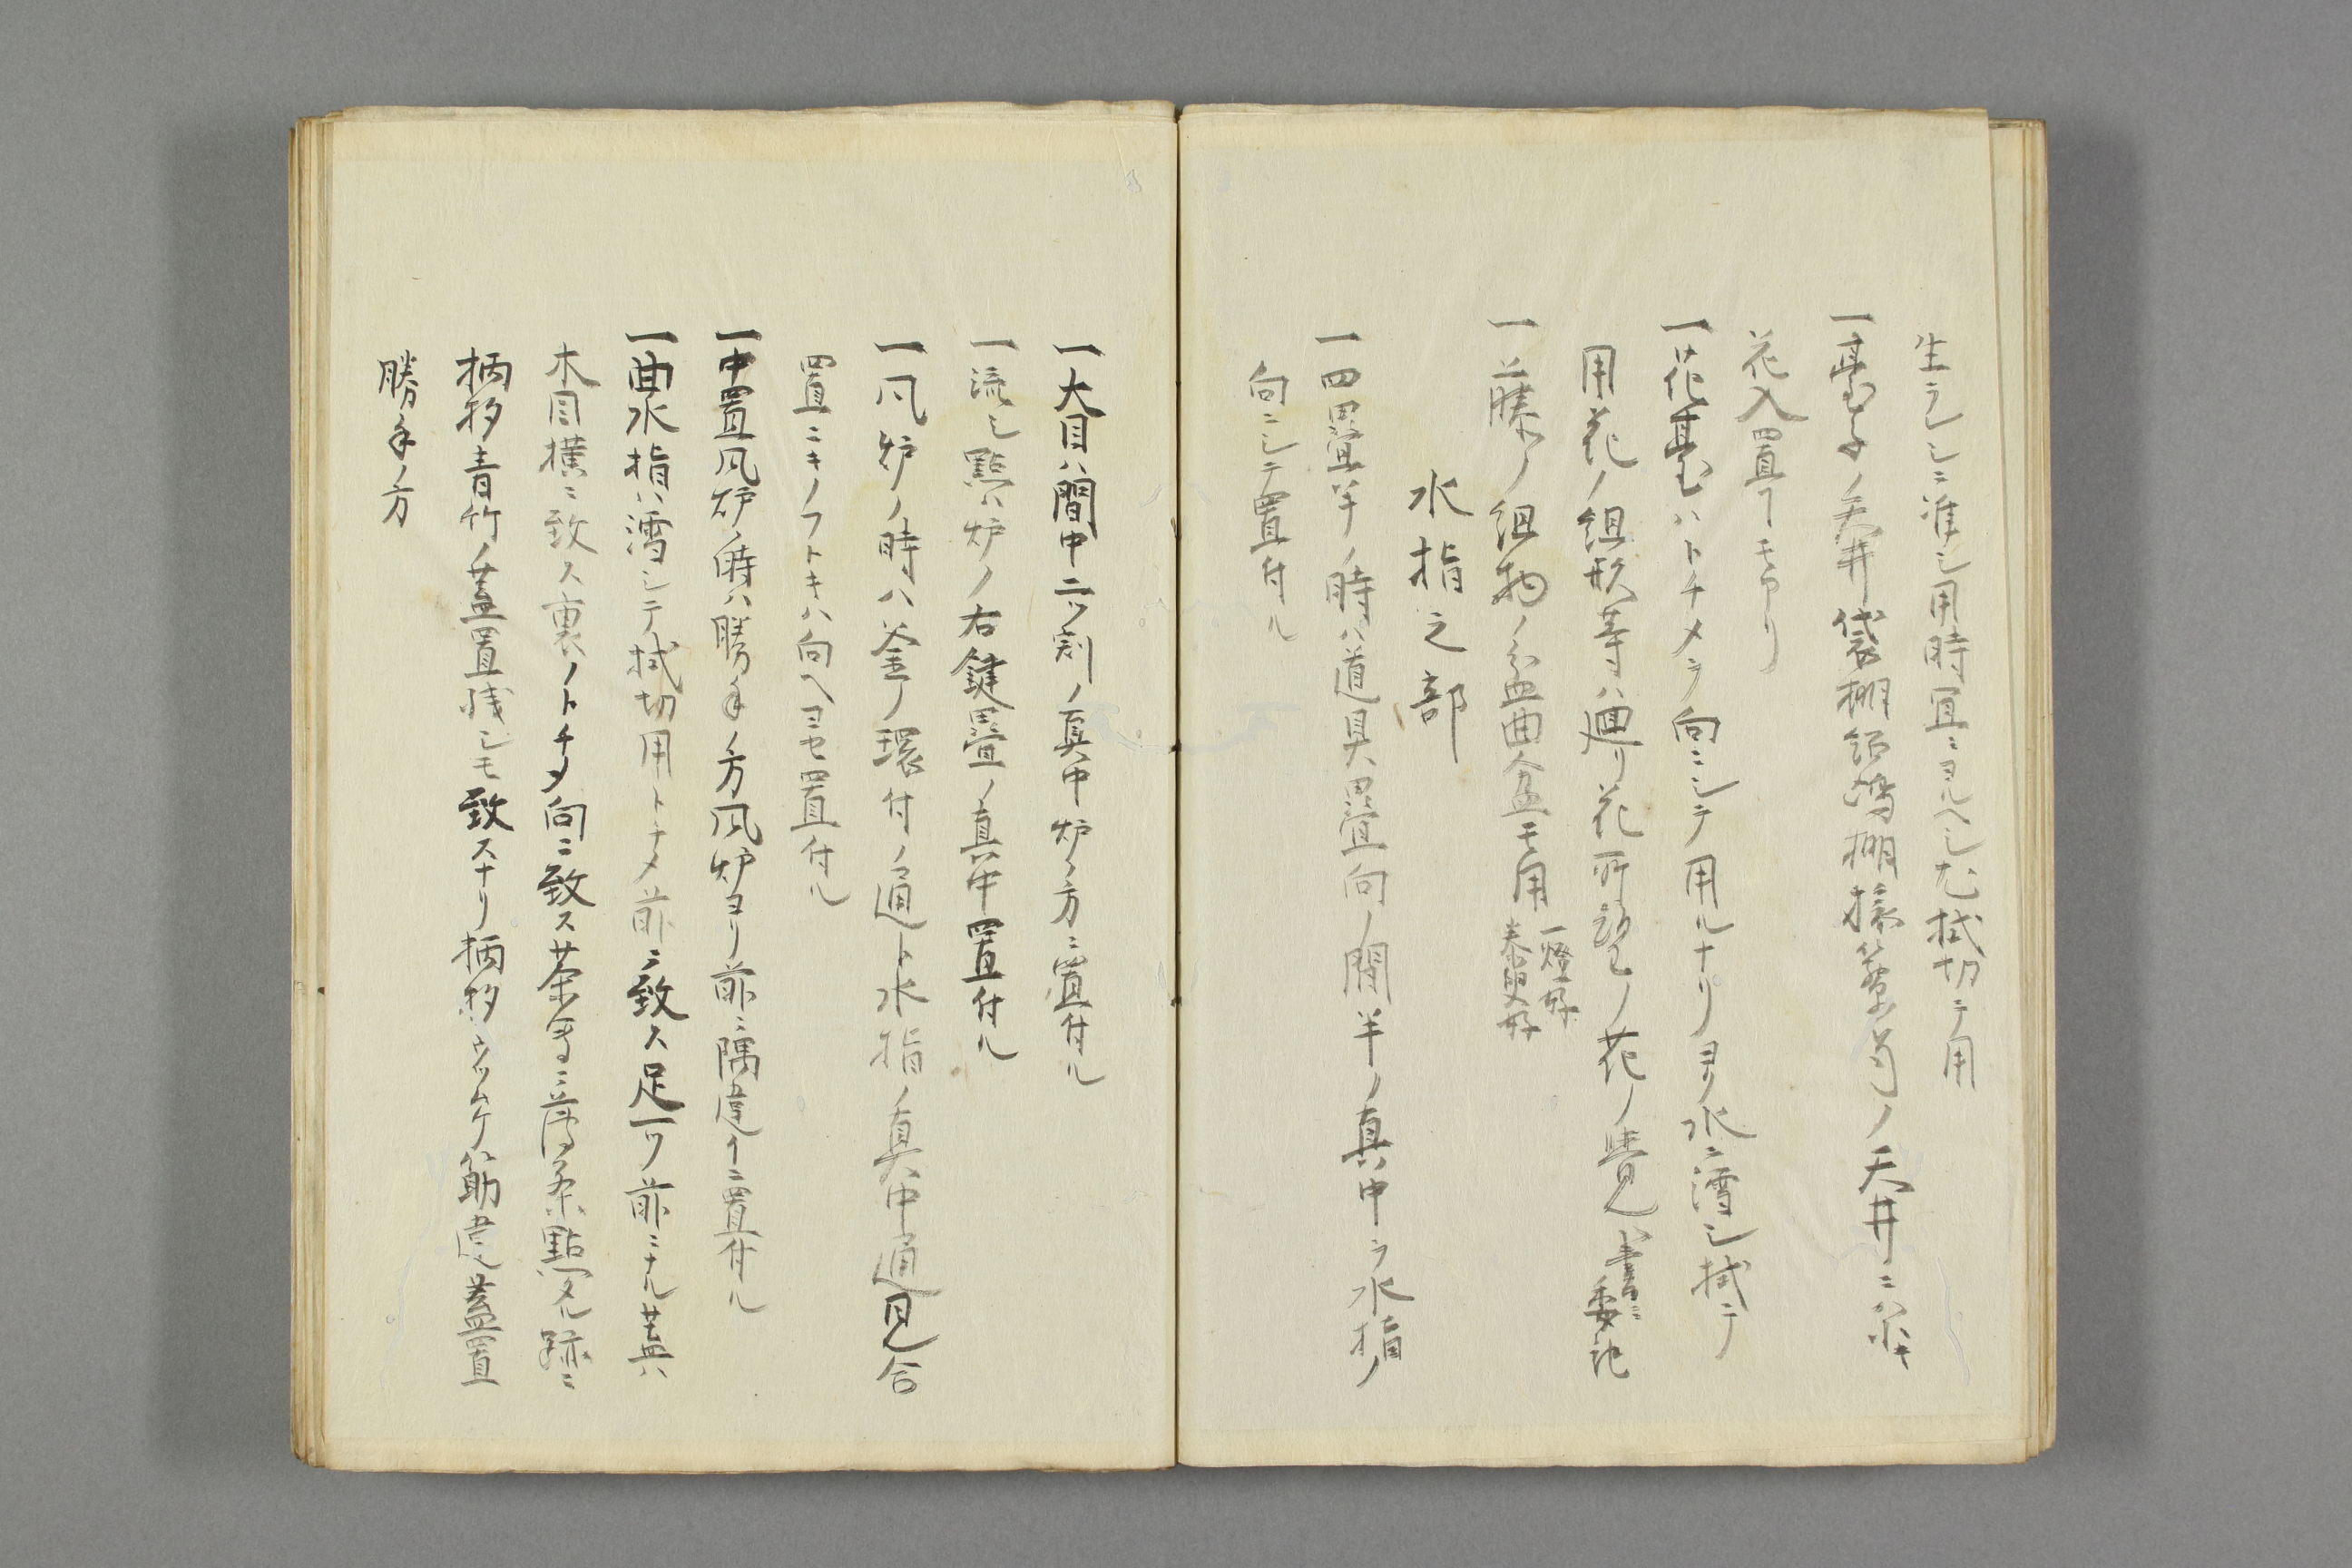 生ラシニ准シ用時宜ニヨルヘシ尤拭切ニテ用
一臺子ノ天井袋棚紹鴎棚ノ天井ニハ
花入置ヿモアリ
一花臺ハトチメヲ向ニシテ用ルナリヨリ水ニ濡シ拭テ
用花ノ組形等ハ廻リ花所望ノ花ノ覚書ニ委記
一藤ノ組物ノ盆曲盆モ用
一燈好
泰叟好
水指之部
一四畳半ノ時ハ道具畳向ノ間半ノ真中ヲ水指ノ
向ニシテ置付ル
一大目ハ間中二ツ割ノ真中炉ノ方ニ置付ル
一流シ點ハ炉ノ右鍵畳ノ真中置付ル
一風炉ノ時ハ釜ノ環付ノ通ト水指ノ真中通見合
置ニキノフトキハ向ヘヨセ置付ル
一中置風炉ノ時ハ勝手ノ方風炉ヨリ前ニ隅違イニ置付ル
一曲水指ハ濡シテ拭切用トチメ前ニ致ス足一ツ前ニナル其ハ
木目横ニ致ス裏ノトチメ向ニ致ス茶ニ薄茶點タル跡ニ
柄杓青竹ノ蓋置残シモ致スナリ柄杓ウツムケ筋違蓋置
勝手ノ方